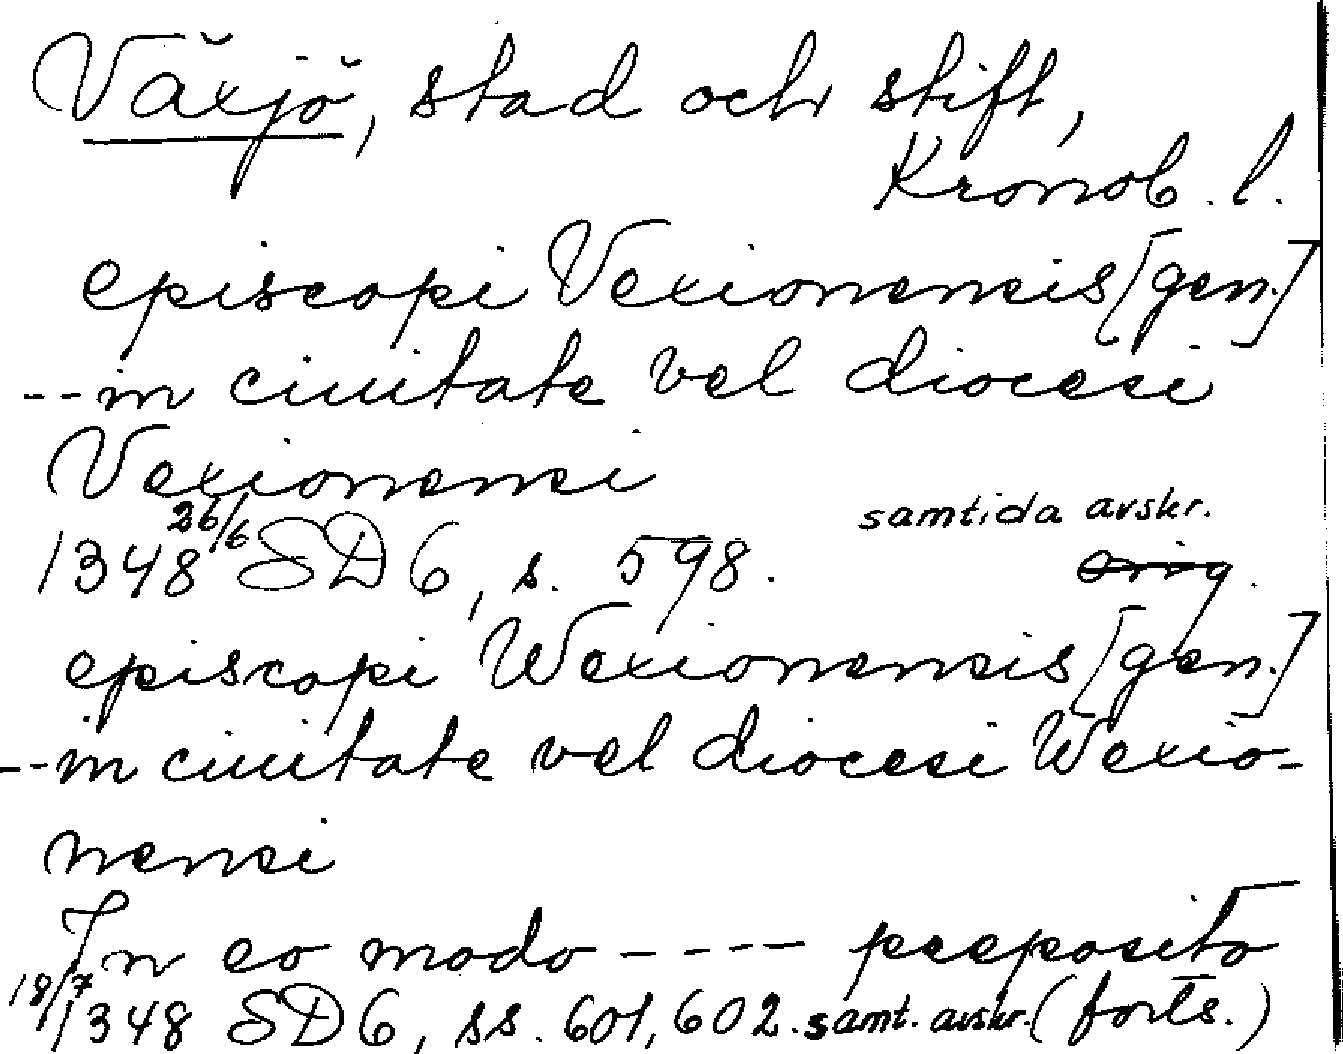 Växjö, stad och stift,
Kronob. l.
episcopi Vexionensis [gen.]
-- in ciuitate vel diocesi
Vexionensi
1348 26/6 SD 6, s. 598. samtida avskr. orig.
episcopi Wexionensis [gen.]
-- in ciuitate vel diocesi Wexio-
nensi
In eo modo ---- preposito
18/7 1348 SD 6, ss. 601, 602. samt. avskr. (forts.)